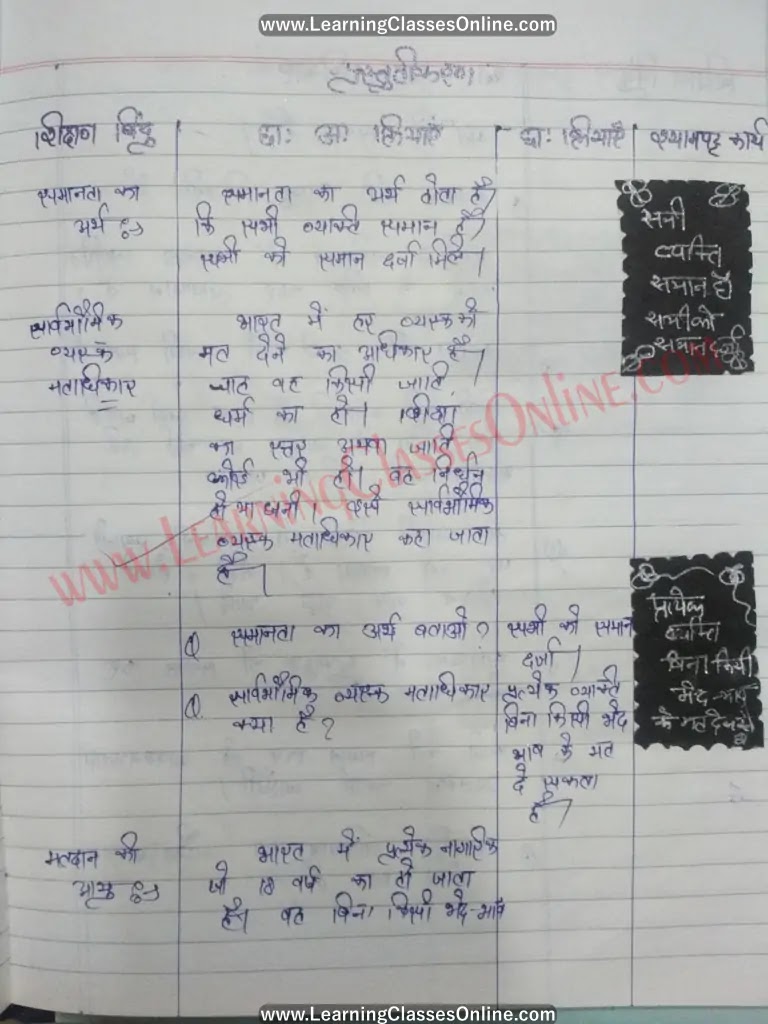 www.LearningClassesOnline.com
प्रस्तुतीकरण
शिक्षण बिंदु
छा: अ: क्रियाएँ
छा: क्रियाएँ
श्यामपट्ट कार्य
समानता का
अर्थ :-
समानता का अर्थ होता है
कि सभी व्यक्ति समान है
सभी को समान दर्जा मिले।
सभी
व्यक्ति
समान है
सभी को
समान दर्जा
सार्वभौमिक
व्यस्क
मताधिकार
भारत में हर व्यस्क को
मत देने का अधिकार है।
चाहे वह किसी जाति,
धर्म का हो। शिक्षा
का स्तर अथवा जाति
कोई भी हो। वह निर्धन
हो या धनी। इसे सार्वभौमिक
व्यस्क मताधिकार कहा जाता
है।
www.LearningClassesOnline.com
Q समानता का अर्थ बताओ?
सभी को समान
दर्जा।
Q सार्वभौमिक व्यस्क मताधिकार
क्या है?
प्रत्येक व्यक्ति
बिना किसी भेद
भाव के मत
दे सकता
है।
प्रत्येक
व्यक्ति
बिना किसी
भेद भाव
के मत दे
मतदान की
आयु :-
भारत में प्रत्येक नागरिक
जो 18 वर्ष का हो जाता
है। वह बिना किसी भेद-भाव
www.LearningClassesOnline.com